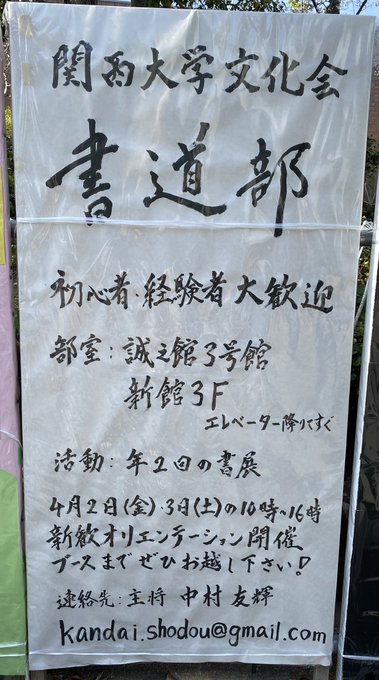 関西大学文化会
書道部
初心者・経験者大歓迎
部室：誠之館3号館
新館3F
エレベーター降りてすぐ
活動：年2回の書展
4月2日(金)・3日(土)の10時~16時
新歓オリエンテーション開催
ブースまでぜひお越し下さい!
連絡先：主将 中村友輝
kandai.shodou@gmail.com